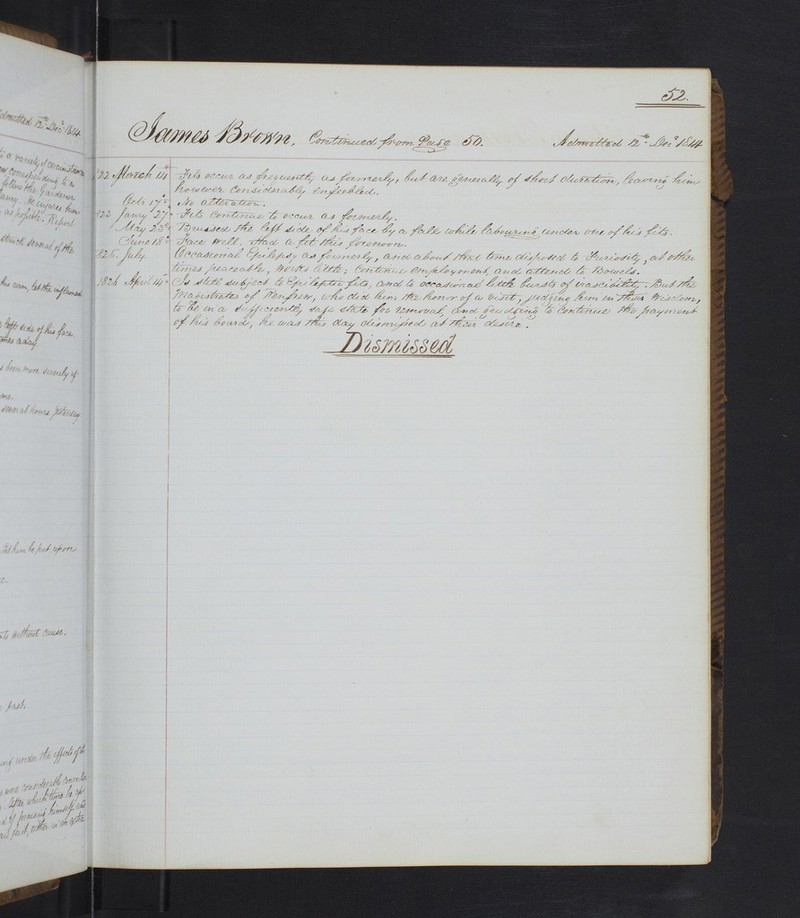 52.
James Brown, Continued from Page 50. Admitted 12th Decr 1814
March 14th Fits occur as frequently as formerly, but are generally of short duration, leaving him
however considerably enfeebled.
Octr 17th No alteration.
Janry 27th Fits continue to occur as formerly.
May 23d Bruised the left side of his face by a fall while labouring under one of his fits.
June 18th Face well. Had a fit this forenoon.
July Occasional Epilepsy as formerly, and about that time disposed to Furiosity, at other
times peaceable, works little; continue employment, and attend to Bowels.
1824 April 14th Is still subject to Epileptic fits, and to occasional little bursts of irascibility; But the
Magistrates of Renfrew, who did him the honor of a visit, judging him in their Wisdom,
to be in a sufficiently safe state for removal, and grudging to continue the payment
of his board, he was this day dismissed at their desire.
Dismissed
admitted 12th Decr 1814
a variety of
corresponding to a
follows the gardener
he injures him
Report
struck several of the
his arm, let the
left side of his face
a day
been more severely
several hours yesterday
him be put upon
without cause.
under the effects of
considerable
after which time he